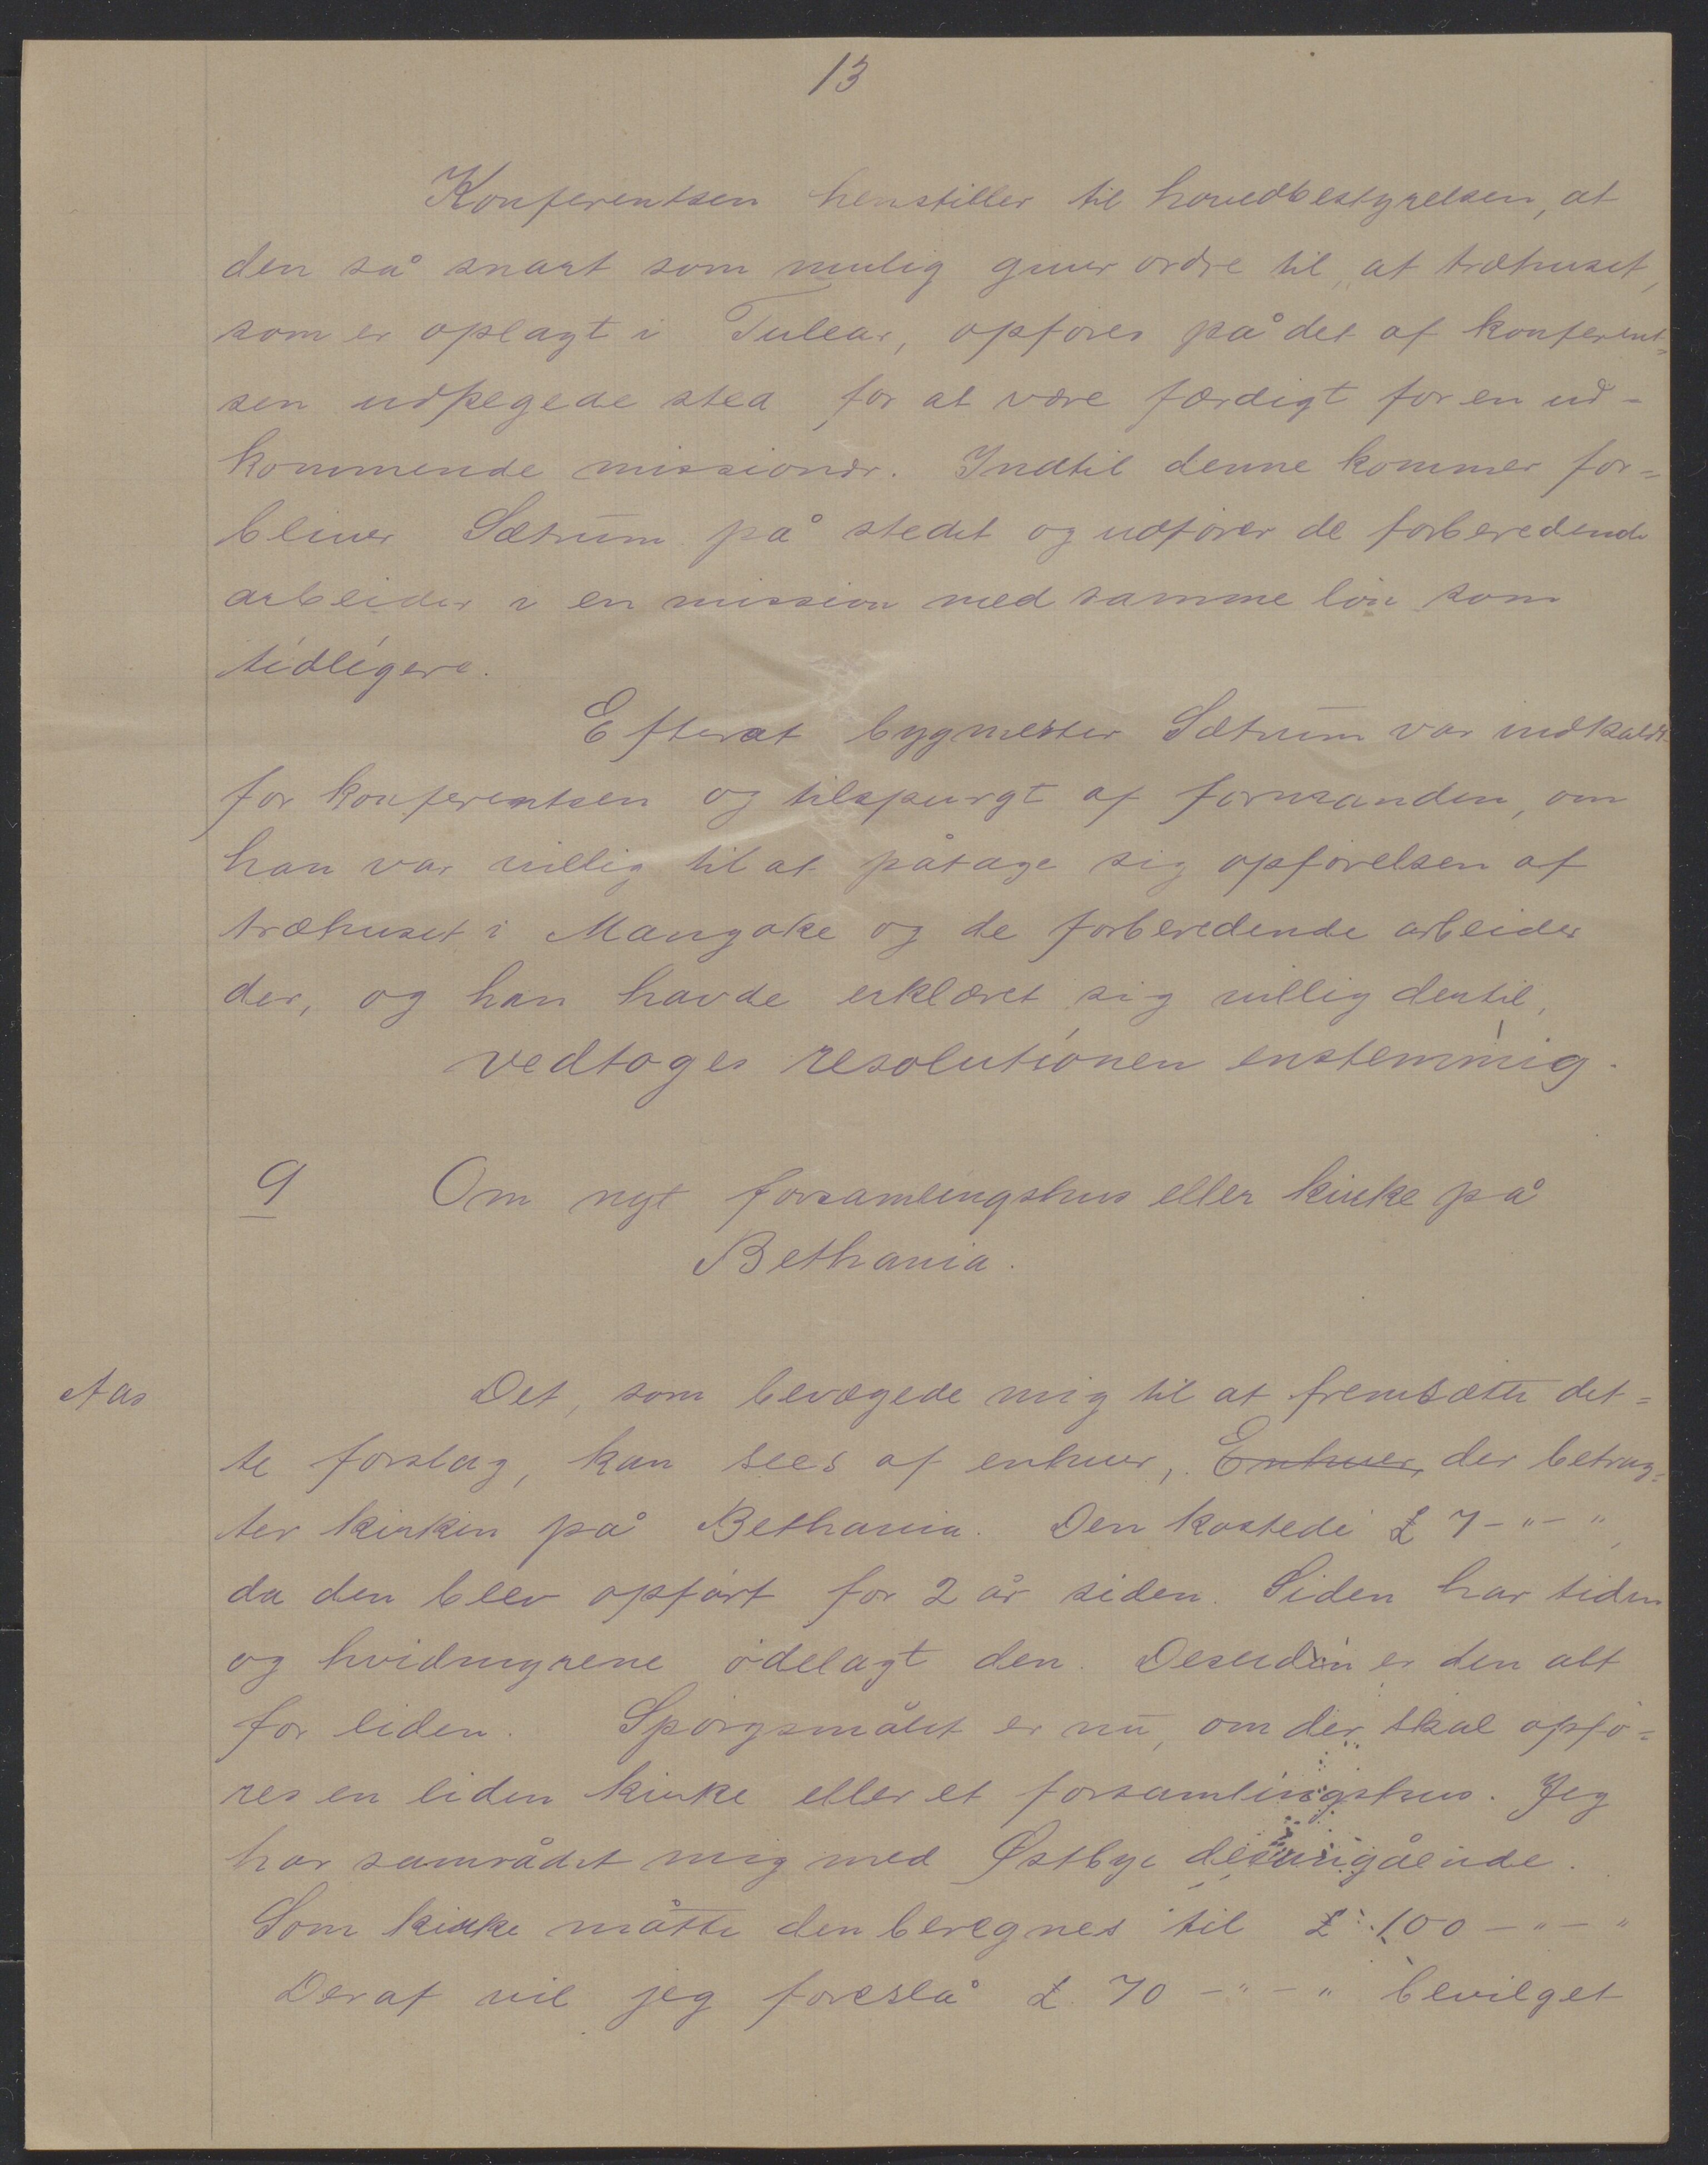 13
Konferentsen henstiller til hovedbestyrelsen, at
den så snart som mulig giver ordre til, at træhuset,
som er oplagt i Tulear, opføres på det af konferent=
sen udpegede sted for at være færdigt for en ud=
kommende missionær. Indtil denne kommer for=
bliver Sætrum på stedet og udfører de forberedende
arbeider i en mission med samme løn som
tidligere.
Efterat bygmester Sætrum var indkaldt
for konferentsen og tilspurgt af formanden, om
han var villig til at påtage sig opførelsen af
træhuset i Mangoke og de forberedende arbeider
der, og han havde erklæret sig villig dertil,
vedtoges resolutionen enstemmig.
9 Om nyt forsamlingshus eller kirke på
Bethania.
Aas Det, som bevægede mig til at fremsætte det=
te forslag, kan sees af enhver, Enhver, der betrag=
ter kirken på Bethania. Den kostede £ 7-"-",
da den blev opført for 2 år siden. Siden har tiden
og hvidmyrene ødelagt den. Desuden er den alt
for liden. Spørgsmålet er nu, om der skal opfø=
res en liden kirke eller et forsamlingshus. Jeg
har samrådet mig med Østbye desangående.
Som kirke måtte den beregnes til £ 100-"-"
Deraf vil jeg foreslå £ 70-"-" bevilget